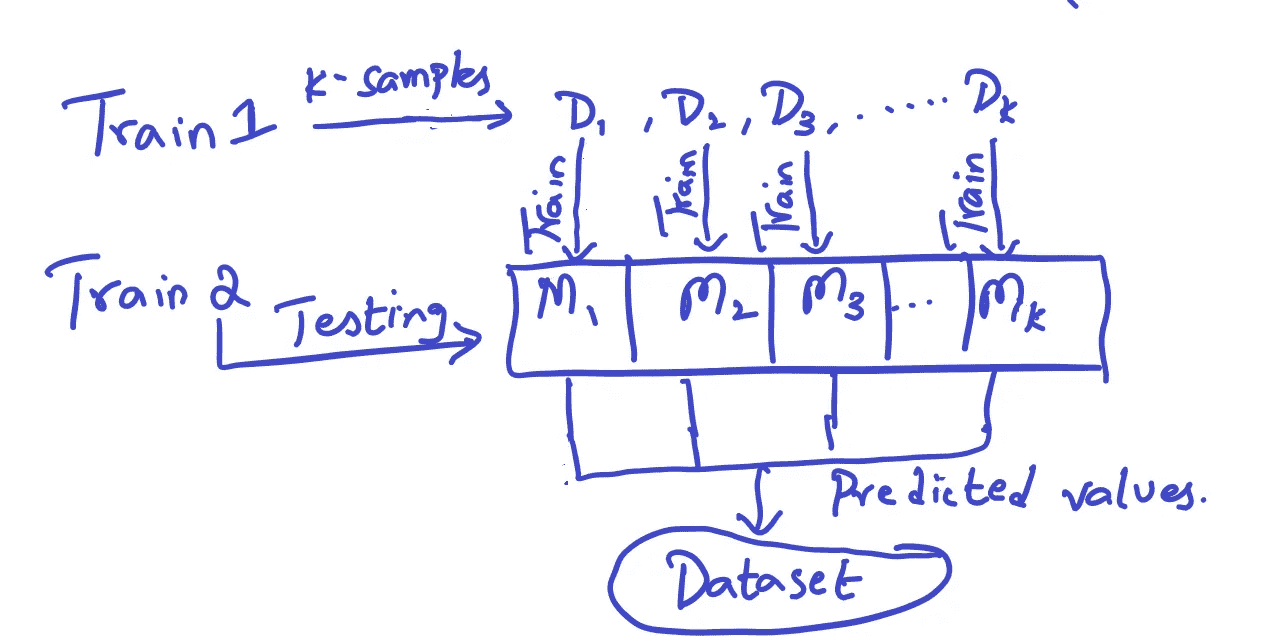 Train 1 K-samples D1, D2, D3, ..... Dk
Train Train Train Train
Train 2 Testing M1 M2 M3 ... Mk
Predicted values.
Dataset